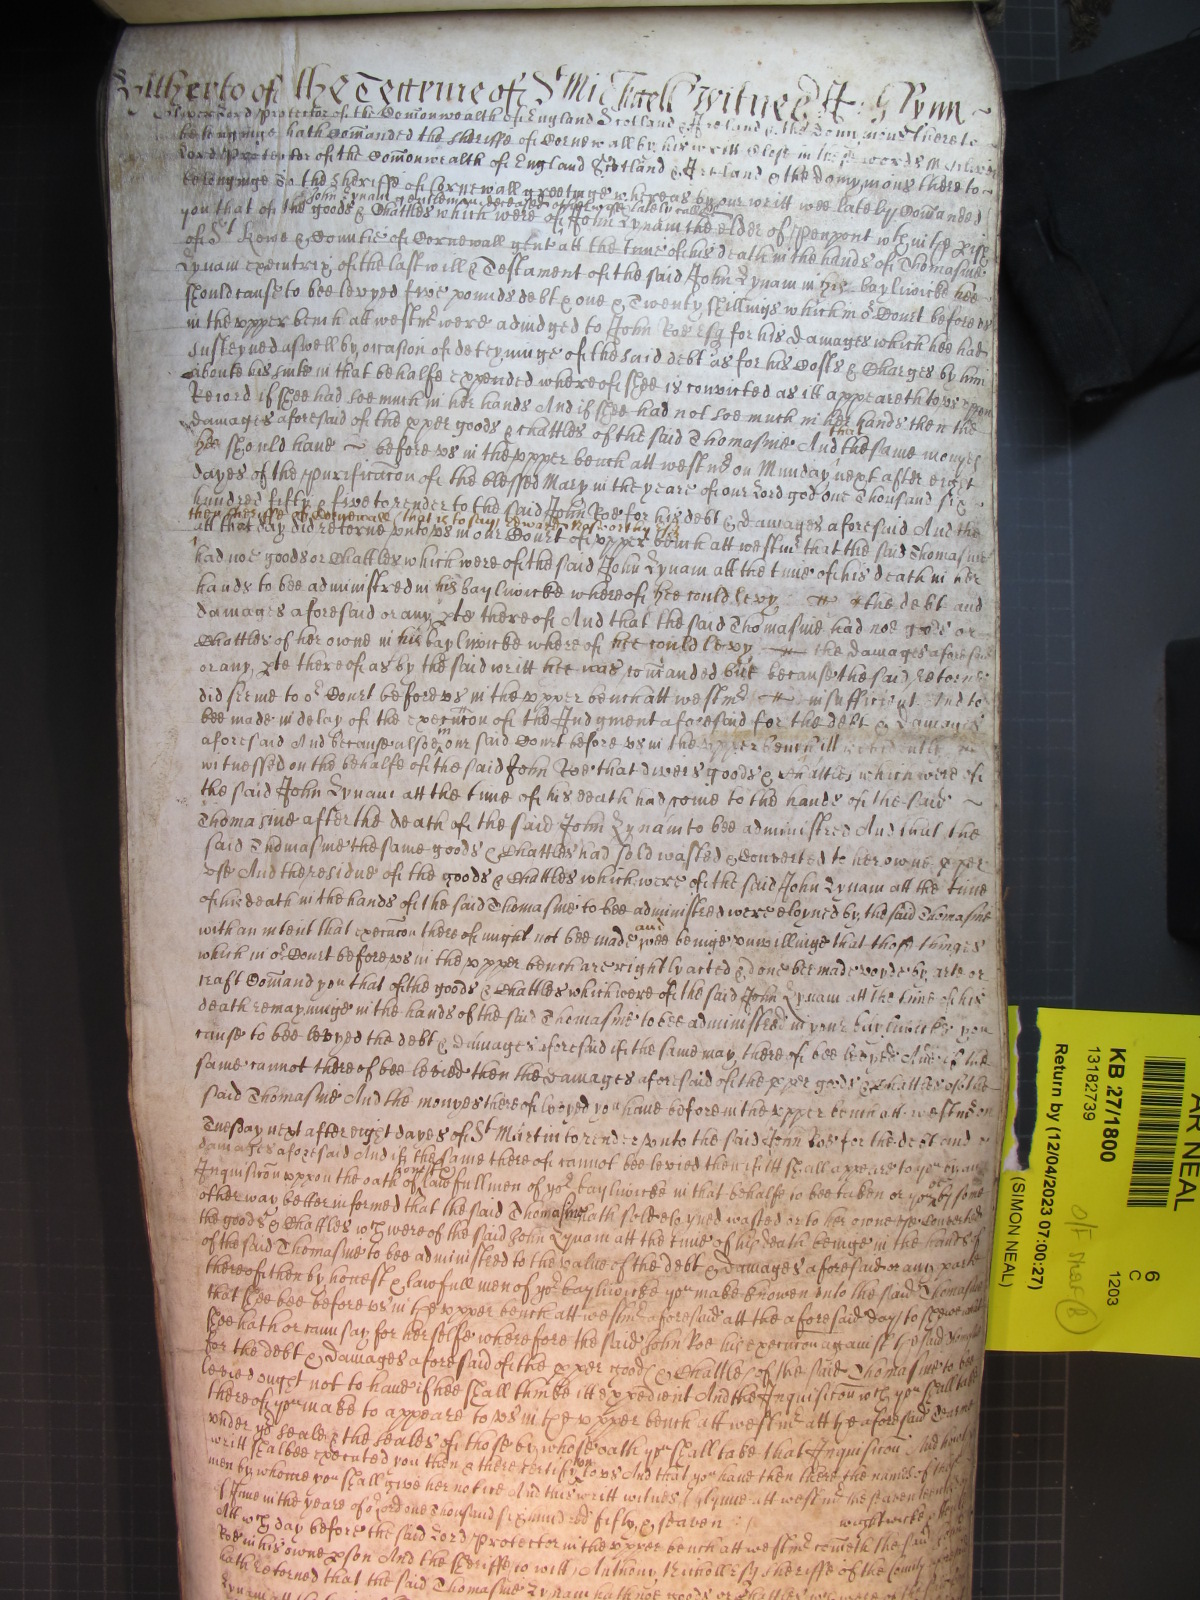 Hitherto of the Tearme of St Michaell Witnes J. Glynn
Oliver Lord Protector of the Comonwealth of England Scotland & Ireland & the Dominions thereto
belonginge hath Comanded the Sheriffe of Cornewall by his writt close in these words Oliver
Lord Protector of the Comonwealth of England Scotland & Ireland & the Domynions thereto
belonginge To the Sheriffe of Cornewall greetinge whereas by our writt wee lately Comanded
John Lynam gentleman deceased otherwise lately called
you that of the goods & Chattles which were of John Lynam the elder of Penpont wthin the pish
of St Kewe & Countie of Cornewall gent att the tyme of his death in the hands of Thomasine
Lynam executrix of the last will & Testament of the said John Lynam in his bayliwicke hee
should cause to bee levyed five pounds debt & one & Twenty shillings which in or Court before vs
in the vpper bench att westmr were adiudged to John Roe Esq for his Damages which hee had
susteyned aswell by occasion of deteyninge of the said debt as for his Costs & Charges by him
aboute his suite in that behalfe expended whereof shee is convicted as itt appeareth to vs vppon
Record if shee had soe much in her hands And if shee had not soe much in her hands then the
damages aforesaid of the pper goods & chattles of the said Thomasine And the same monyes
that
hee should haue before vs in the vpper bench att westmr on Munday next after eight
dayes of the Purificacon of the blessed Mary in the yeare of our Lord god one Thousand six
hundred fifty & five to render to the said John Roe for his debt & damages aforesaid And the
then sheriffe of Cornewall (that is to say) Edward Nosworthy Esq
att that day did retorne vnto vs in our Court of vpper bench att westmr that the said Thomasine
had noe goods or Chattles which were of the said John Lynam att the time of his death in her
hands to bee administred in his bayliwicke whereof hee could levy the debt and
damages aforesaid or any pte thereof And that the said Thomasine had noe goods or
Chattles of her owne in his bayliwicke whereof hee could levy the damages aforesaid
or any pte thereof as by the said writt hee was comanded but because the said retorne
did seeme to or Court before vs in the vpper bench att westmr insufficient And to
bee made in delay of the execucon of the Iudgment aforesaid for the debt & damages
aforesaid And because alsoe in our said Court before vs in the vpper bench itt is
witnessed on the behalfe of the said John Roe that divers goods & chattles which were of
the said John Lynam att the time of his death had come to the hands of the said
Thomasine after the death of the said John Lynam to bee administred And that the
said Thomasine the same goods & Chattles had sold wasted & Converted to her owne pper
vse And the residue of the goods & Chattles which were of the said John Lynam att the time
of his death in the hands of the said Thomasine to bee administred were eloyned by the said Thomasine
with an intent that execucon thereof might not bee made and wee beinge vnwillinge that those thinges
which in or Court before vs in the vpper bench are rightly acted & done bee made voyde by arte or
craft Comand you that of the goods & Chattles which were of the said John Lynam att the time of his
death remayninge in the hands of the said Thomasine to bee administred in your bayliwicke you
cause to bee levyed the debt & damages aforesaid if the same may thereof bee levyed And if the
same cannot thereof bee levied then the damages aforesaid of the pper goods & Chattles of the
said Thomasine And the monyes thereof levyed you haue before in the vpper bench att westmr on
Tuesday next after eight dayes of St Martin to render vnto the said John Roe for the debt and
damages aforesaid And if the same thereof cannot bee levied then if itt shall appeare to you by an
Inquisicon vppon the oath of honest & lawfull men of yor bayliwicke in that behalfe to bee taken or yor by some
other way better informed that the said Thomasine hath sold eloyned wasted or to her owne vse Converted
the goods & Chattles wch were of the said John Lynam att the time of his death beinge in the hands of
of the said Thomasine to bee administred to the value of the debt & damages aforesaid or any parte
thereof then by honest & lawfull men of yor bayliwicke you make knowen vnto the said Thomasine
that shee bee before vs in the vpper bench att westmr aforesaid att the aforesaid day to shewe
shee hath or cann say for herselfe wherefore the said John Roe his execucon against the said Thomasine
for the debt & Damages aforesaid of the pper goods & Chattles of the said Thomasine to bee
levied ought not to haue if hee shall thinke itt expedient And the Inquisicon wch you shall take
thereof you make to appeare to vs in the vpper bench att westmr att the aforesaid Tearme
vnder yor seale & the seales of those by whose oath you shall take that Inquisicon And how
writt shalbee executed you then & there certify to vs And that you haue then there the names of those
men by whome you shall giue her notice And this writt witnes J Glynne att westmr the seaventeenth
of June in the yeare of or Lord one thousand six hundred fifty & seaven Wightwicke
Att wch day before the said Lord Protector in the vpper bench att westmr cometh the said John
Roe in his owne pson And the sheriffe to witt Anthony Nicholl Esq sheriffe of the County
hath retorned that the said Thomasine Lynam hath noe goods or Chattles
Lynam att
AR NEAL
KB 27/1800
13182739
Return by (12/04/2023 07:00:27)
(SIMON NEAL)
6
C
1203